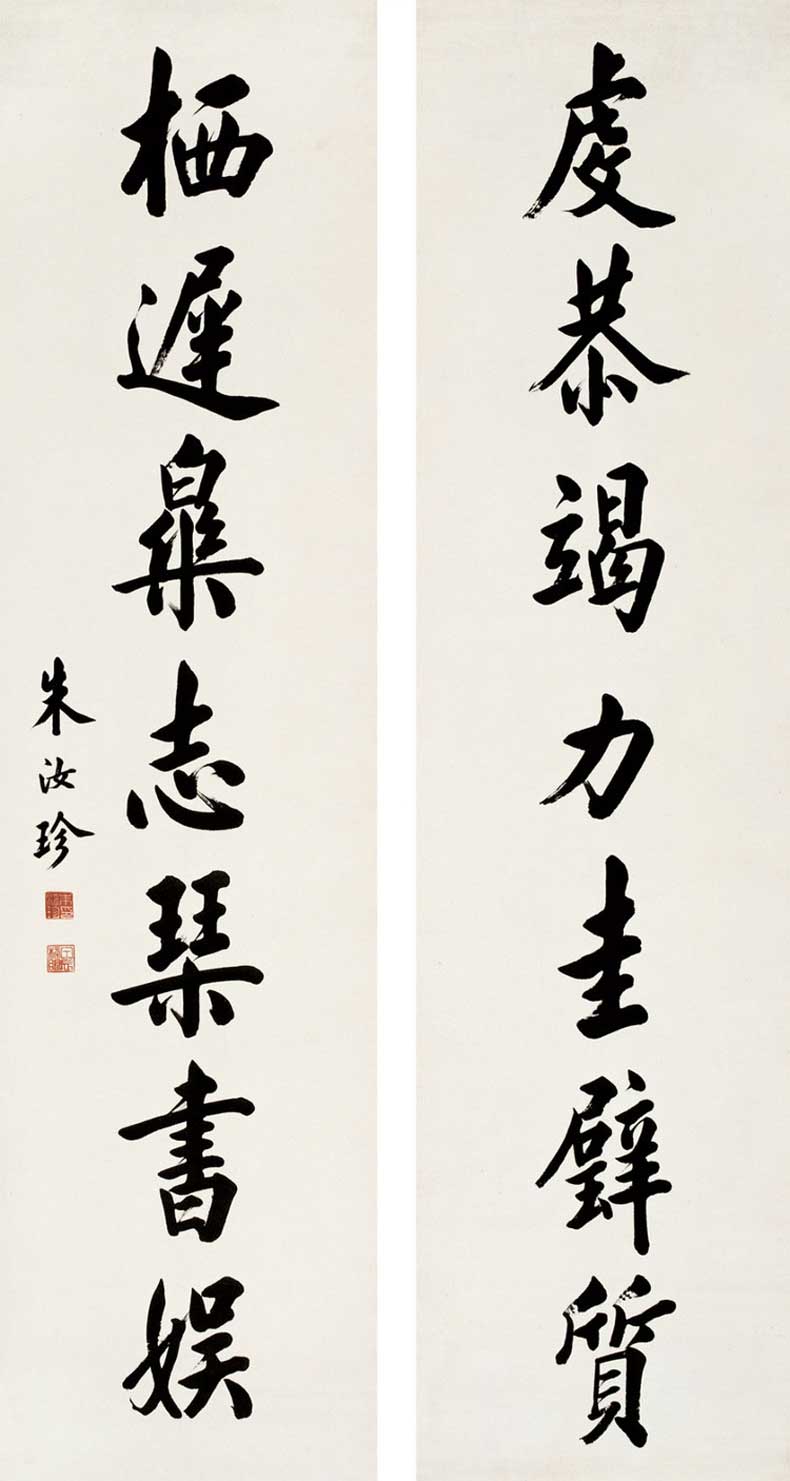 虔恭竭力圭璧質
栖遲樂志琹書娛
朱汝珍